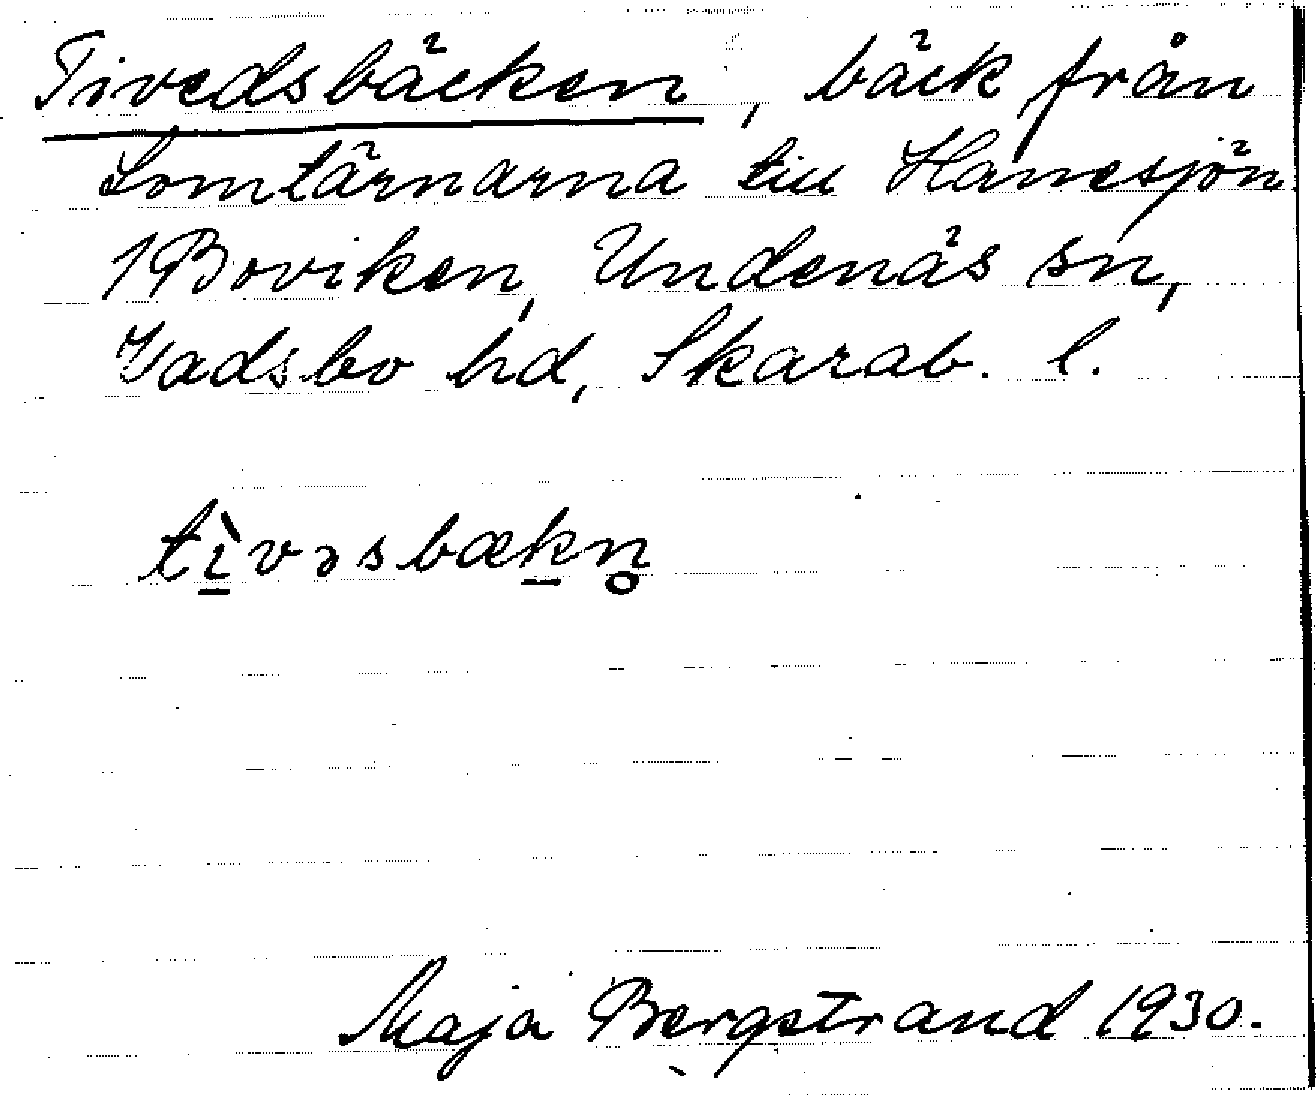 Tivedsbäcken, bäck från
Lomtärnarna till Hanesjön
1 Boviken, Undenäs sn,
Vadsbo hd, Skarab. l.
tìvəsbækn̥
Maja Bergstrand 1930.